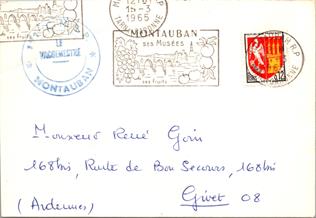 ses fruits
12H01
15-3
1965
TARN-ET-GARONNE
MONTAUBAN
ses Musées
ses fruits
LE
VAGUEMESTRE
MONTAUBAN
0,12
Monsieur René Goin
168bis, Route de Bon Secours, 168bis
(Ardennes) Givet 08